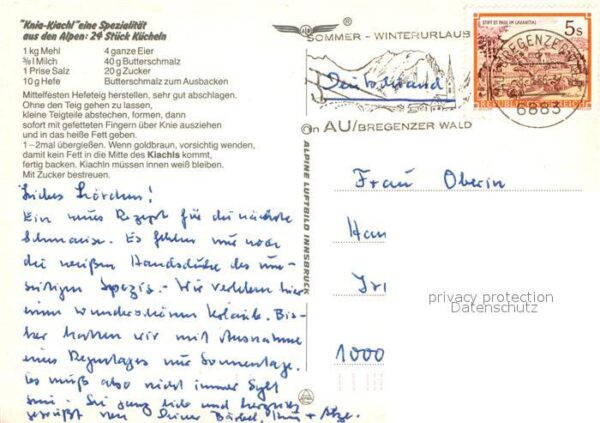 "Knia-Kiachl" eine Spezialität
aus den Alpen: 24 Stück Kücheln
1 kg Mehl 4 ganze Eier
3/8 l Milch 40 g Butterschmalz
1 Prise Salz 20 g Zucker
10 g Hefe Butterschmalz zum Ausbacken
Mittelfesten Hefeteig herstellen, sehr gut abschlagen.
Ohne den Teig gehen zu lassen,
kleine Teigteile abstechen, formen, dann
sofort mit gefetteten Fingern über Knie ausziehen
und in das heiße Fett geben.
1–2mal übergießen. Wenn goldbraun, vorsichtig wenden,
damit kein Fett in die Mitte des Kiachls kommt,
fertig backen. Kiachln müssen innen weiß bleiben.
Mit Zucker bestreuen.
Liebes Lörchen!
Ein neues Rezept für die nächste
Schmause. Es fehlen nur noch
die weißen Handschuhe des
Spezis. - Wir verleben hier
einen wunderschönen Urlaub. Bis-
her hatten wir mit Ausnahme
eines Regentages nur Sonnentage.
Es muß also nicht immer Sylt
sein. - Sei ganz lieb und herzlich
gegrüßt von Deiner Bärbel, +
ALPINE LUFTBILD INNSBRUCK
®
SOMMER - WINTERURLAUB
in AU/BREGENZER WALD
Deutschland
STIFT ST. PAUL IM LAVANTTAL
5s
REPUBLIK ÖSTERREICH
6883
Frau Oberin
Han
Iri
1000
privacy protection
Datenschutz